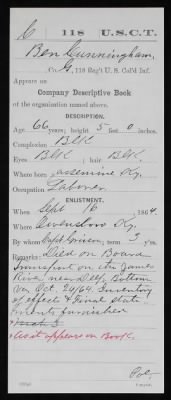 C | 118 | U.S.C.T.
Ben Cunningham,
Co. G, 118 Reg't U. S. Col'd Inf.
Appears on
Company Descriptive Book
of the organization named above.
DESCRIPTION.
Age 66 years; height 5 feet 0 inches.
Complexion Blk
Eyes Blk; hair Blk.
Where born Jassemine Ky.
Occupation Laborer
ENLISTMENT.
When Sept 16, 1864.
Where Owensboro Ky.
By whom Capt Grissom; term 3 y'rs.
Remarks: Died on Board
Transport on the James
River near Deep Bottom
Va Oct. 29/64. Inventory
of effects & Final state-
ments furnished
*As it appears on Book.